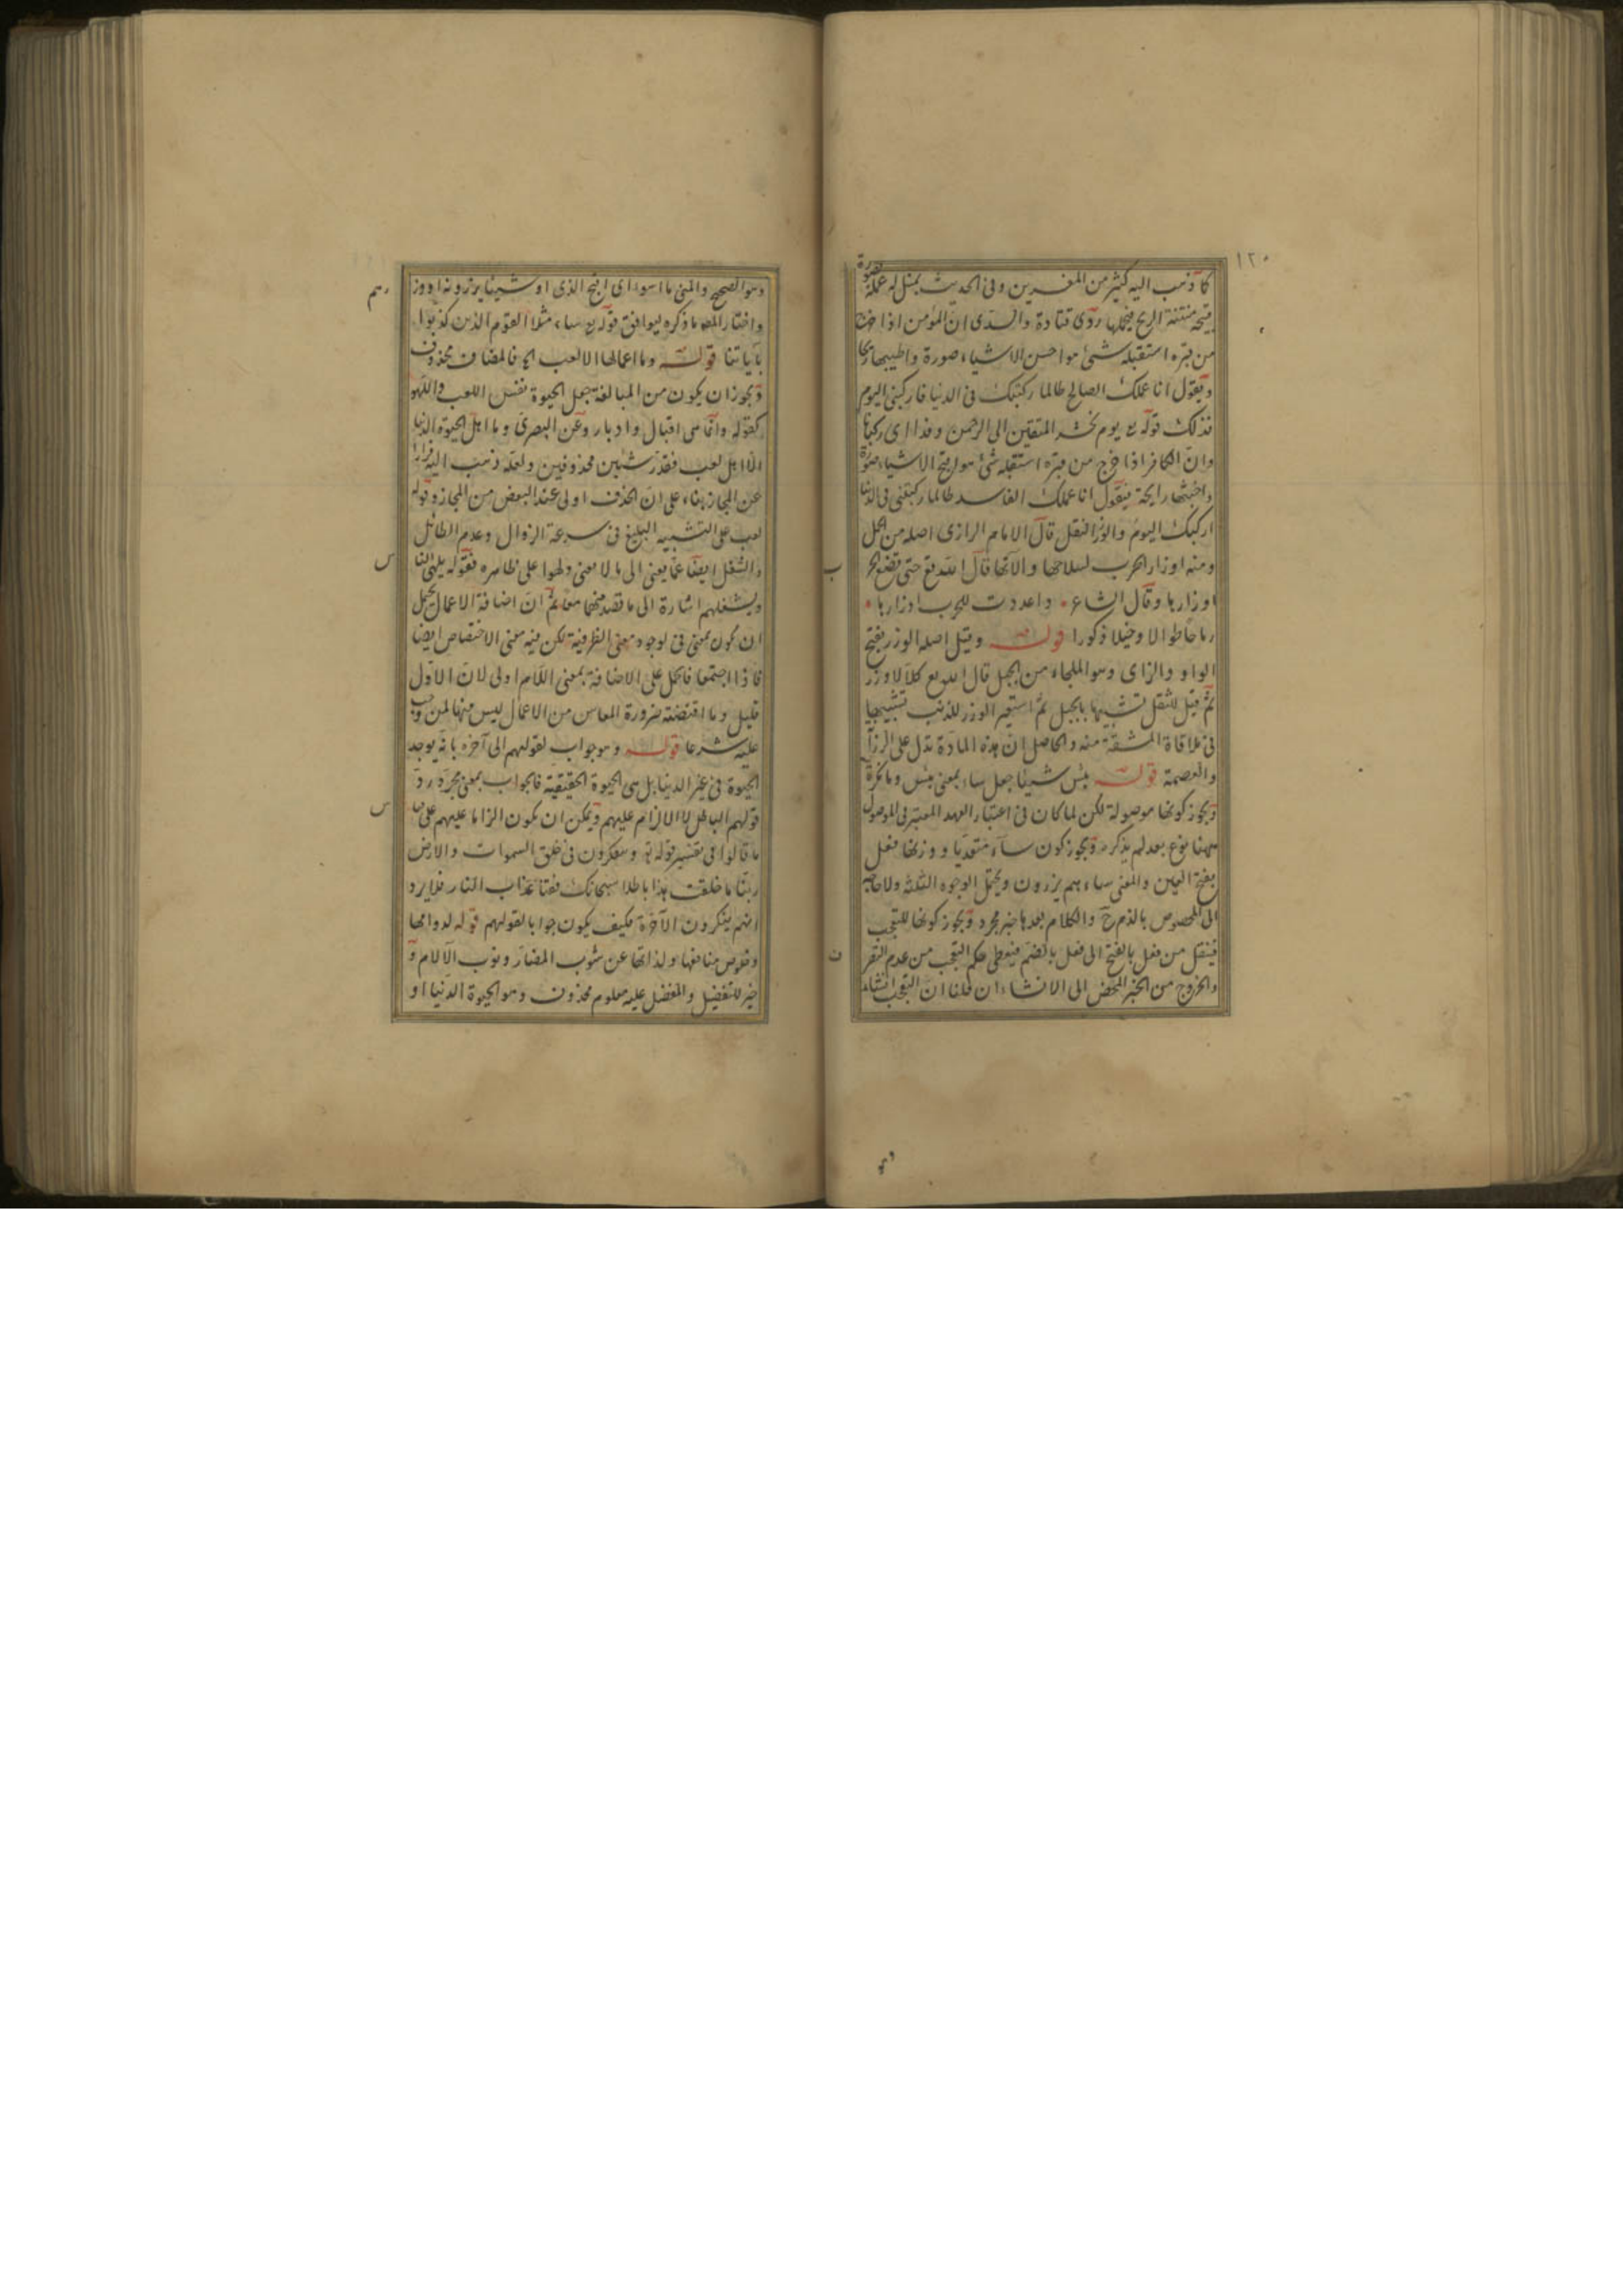 ١٢٠
كما ذهب اليه كثير من المفسرين وفى الحديث يمثل له عمله بصورة
قبيحة منتنة الريح فيحملها روى قتادة والسدى ان المؤمن اذا خرج
من قبره استقبله شئ هو احسن الاشياء صورة واطيبها ريحا
ويقول انا عملك الصالح طالما ركبتك فى الدنيا فاركبنى اليوم
فذلك قوله تع يوم نحشر المتقين الى الرحمن وفدا اى ركبانا
وان الكافر اذا خرج من قبره استقبله شئ هو اقبح الاشياء صورة
واخبثها رايحة فيقول انا عملك الفاسد طالما ركبتنى فى الدنيا
اركبك اليوم والوزر الثقل قال الامام الرازى اصله من الحمل
ومنه اوزار الحرب لسلاحها والآتها قال الله تع حتى تضع الحرب
اوزارها وقال الشاعر واعددت للحرب اوزارها
رماحا طوالا وخيلا ذكورا قوله وقيل اصله الوزر بفتح
الواو والزاى وهو الملجاء من الجبل قال الله تع كلا لا وزر
ثم قيل للثقل تشبيها بالجبل ثم استعير الوزر للذنب تشبيها
فى ملاقاة المشقة منه والحاصل ان هذه المادة تدل على الرزآ
والعصمة قوله بئس شيئا جعل ساء بمعنى بئس وما نكرة
ويجوز كونها موصولة لكن لما كان فى اعتبار العهد المعتبر فى الموصول
ههنا نوع بعد لم يذكره ويجوز كون ساء متعديا ووزنها فعل
بفتح العين والمعنى ساءهم يزرون ويحتمل الوجوه الثلثة ولا حاجة
الى المخصوص بالذم ح والكلام بعدها خبر مجرد ويجوز كونها للتعجب
فينقل من فعل بالفتح الى فعل بالضم فيعطى حكم التعجب من عدم التصرف
والخروج من الخبر المحض الى الانشاء ان قلنا ان التعجب انشاء
وهو الصحيح والمعنى ما اسوء اى اقبح الذى او شيئا يزرونه او وزرهم
واختار المصه ما ذكره ليوافق قوله تع ساء مثلا القوم الذين كذبوا
بآياتنا قوله وما اعمالها الا لعب الخ فالمضاف محذوف
ويجوز ان يكون من المبالغة جعل الحيوة نفس اللعب واللهو
كقوله وانما هى اقبال وادبار وعن البصرى وما اهل الحيوة الدنيا
الا اهل لعب فقدر شيئين محذوفين ولعله ذهب اليه فرارا
عن المجاز بناء على ان الحذف اولى عند البعض من المجاز وقوله
لعب على التشبيه البليغ فى سرعة الزوال وعدم الطائل
والشغل ايضا عما يعنى الى ما لا يعنى ولهوا على ظاهره فقوله يلهى الناس
ويشغلهم اشارة الى ما قصد منهما معا ثم ان اضافة الاعمال يحتمل
ان يكون بمعنى فى لوجود معنى الظرفية لكن فيه معنى الاختصاص ايضا
فاذا اجتمعا فالحمل على الاضافة بمعنى اللام اولى لان الاول
قليل وما اقتضته ضرورة المعاش من الاعمال ليس منها لمن وجب
عليه شرعا قوله وهو جواب لقولهم الى آخره بانه يوجد
الحيوة فى غير الدنيا بل هى الحيوة الحقيقية فالجواب بمعنى مجرد رد
قولهم الباطل لا الالزام عليهم ويمكن ان يكون الزاما عليهم على
ما قالوا فى تفسير قوله تع ويتفكرون فى خلق السموات والارض
ربنا ما خلقت هذا باطلا سبحانك فقنا عذاب النار فلا يرد
انهم ينكرون الآخرة فكيف يكون جوابا لقولهم قوله لدوامها
وخلوص منافعها ولذاتها عن شوب المضار ونوب الآلام و
خير للتفضيل والمفضل عليه معلوم محذوف وهو الحيوة الدنيا او